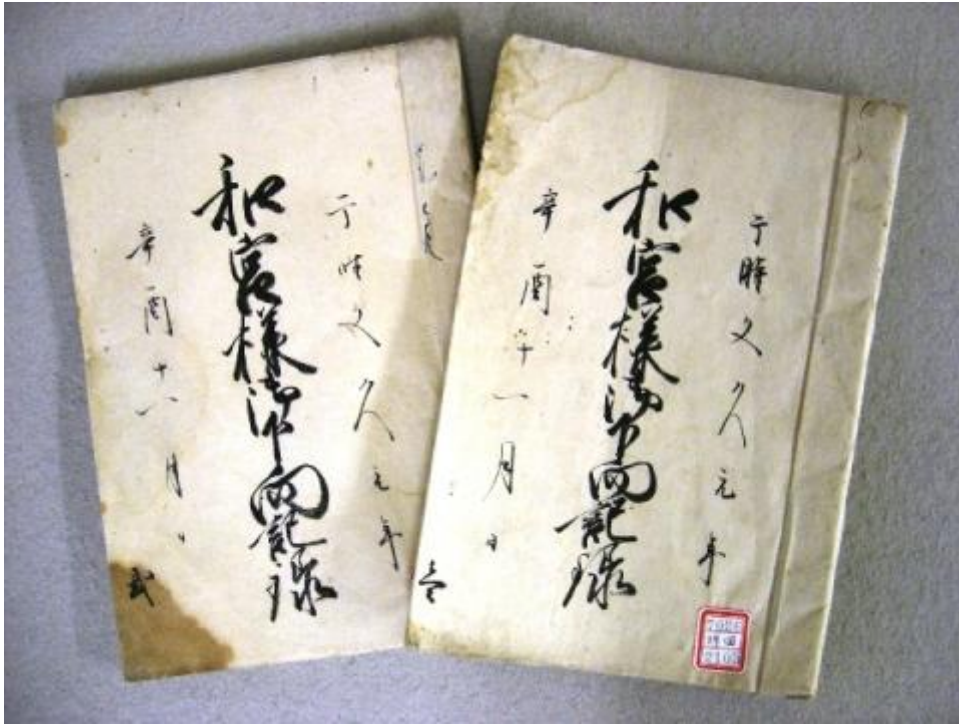 于時文久元年
和宮様御下向記録
辛酉十一月日
壱
于時文久元年
和宮様御下向記録
辛酉十一月日
弐